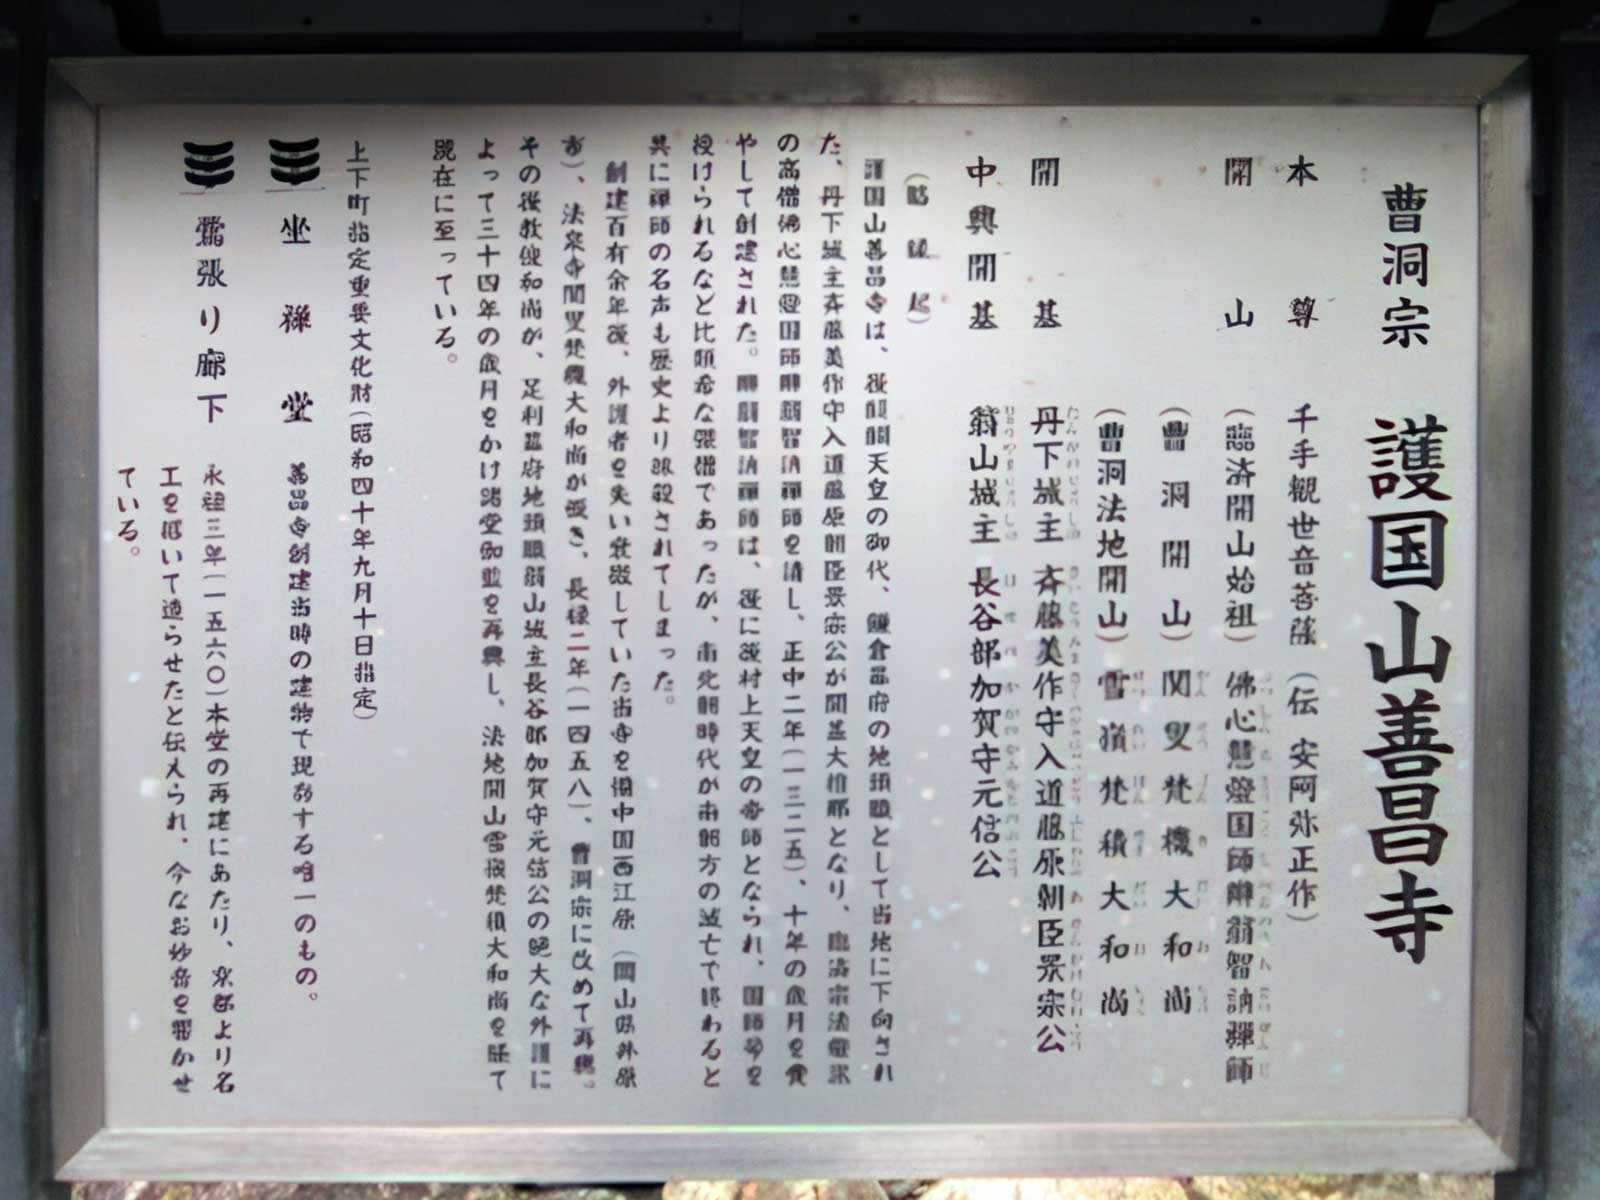 曹洞宗 護国山善昌寺
本尊 千手観世音菩薩(伝 安阿弥正作)
開山 (臨済開山始祖)佛心慧燈国師辨翁智訥禅師
(曹洞開山)関叟梵機大和尚
(曹洞法地開山)雪嶺梵積大和尚
開基 丹下城主 斉藤美作守入道藤原朝臣景宗公
中興開基 翁山城主 長谷部加賀守元信公
(略縁起)
護国山善昌寺は、後醍醐天皇の御代、鎌倉幕府の地頭職として当地に下向され
た、丹下城主斉藤美作守入道藤原朝臣景宗公が開基大檀那となり、臨済宗法燈派
の高僧佛心慧燈国師辨翁智訥禅師を請し、正中二年(一三二五)、十年の歳月を費
やして創建された。辨翁智訥禅師は、後に後村上天皇の帝師となられ、国師号を
授けられるなど比類希な禅僧であったが、南北朝時代が南朝方の滅亡で終わると
共に禅師の名声も歴史より抹殺されてしまった。
創建百有余年後、外護者を失い衰微していた当寺を備中国西江原(岡山県井原
市)、法泉寺開叟梵機大和尚が嘆き、長禄二年(一四五八)、曹洞宗に改めて再興。
その後教俊和尚が、足利幕府地頭職翁山城主長谷部加賀守元信公の絶大な外護に
よって三十四年の歳月をかけ諸堂伽藍を再興し、法地開山雪嶺梵積大和尚を経て
現在に至っている。
上下町指定重要文化財(昭和四十年九月十日指定)
坐禅堂 善昌寺創建当時の建物で現存する唯一のもの。
鶯張り廊下 永禄三年(一五六〇)本堂の再建にあたり、京都より名
工を招いて造らせたと伝えられ、今なお妙音を響かせ
ている。